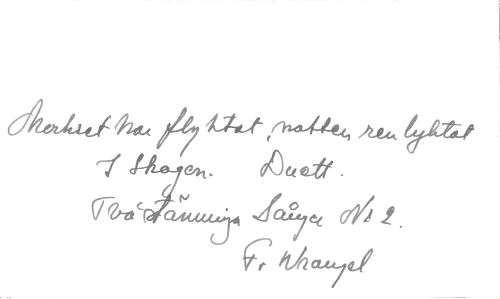 Mörkret har flyktat, natten ren lyktat
I Skogen. Duett.
Två stämmiga Sånger No 2.
Fr Wrangel